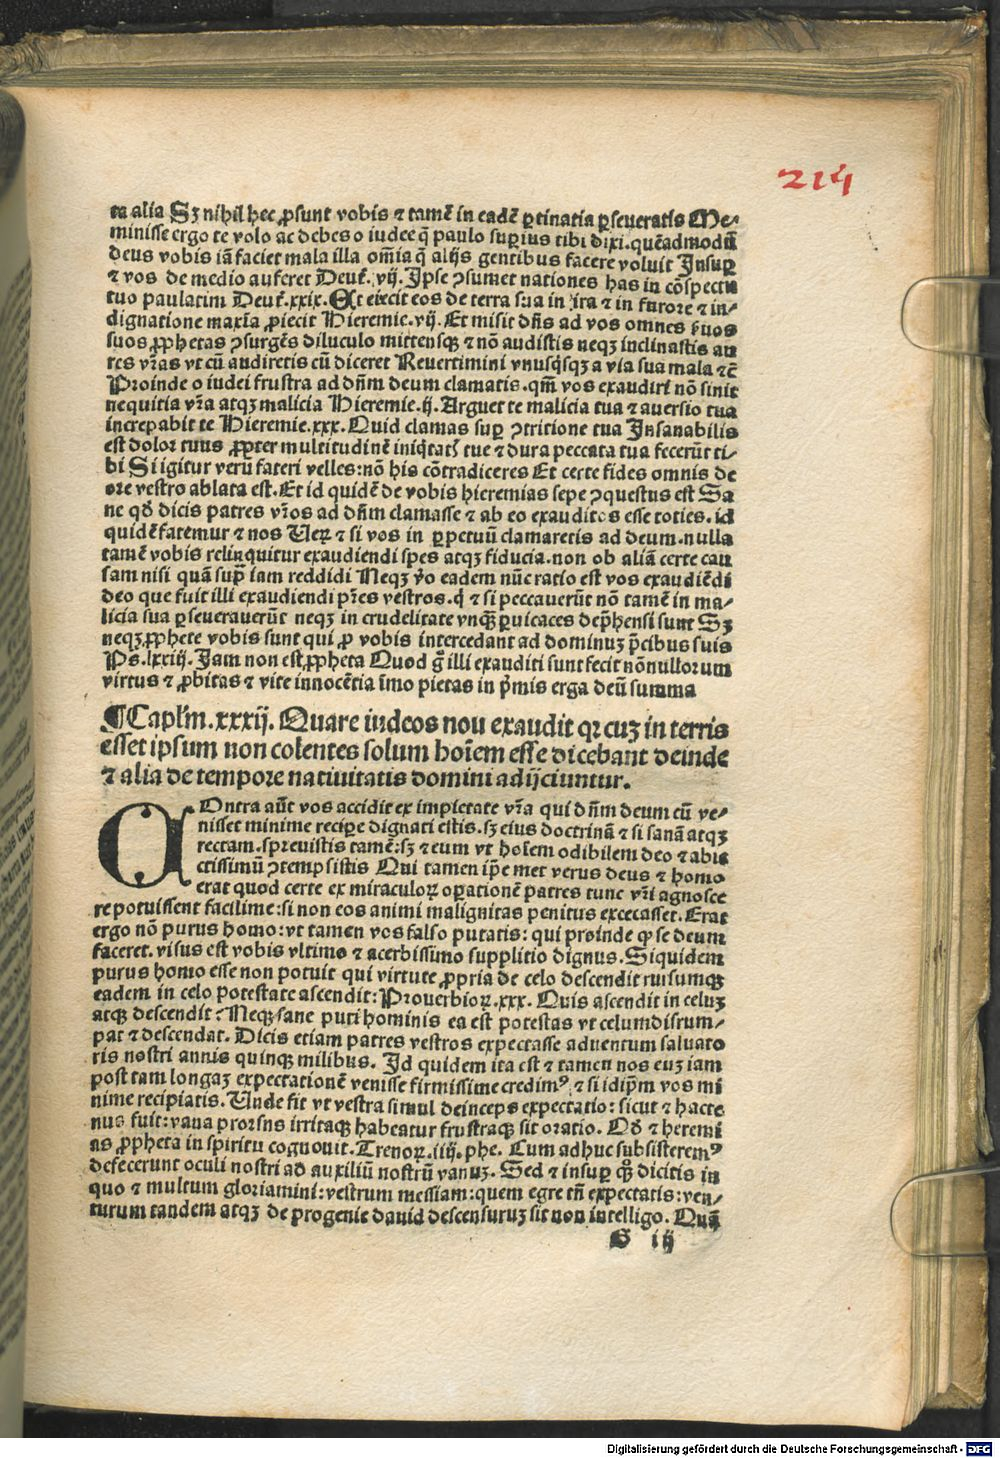 214
ta alia Sꝫ nihil hec ꝓsunt vobis ⁊ tamē in eadē ꝑtinatia ꝑseueratis Me⸗
minisse ergo te volo ac debes o iudee q̄ paulo suꝑius tibi dixi. quēadmodū
deus vobis iā faciet mala illa om̄ia q̄ alijs gentibus facere voluit Insuꝑ
⁊ vos de medio auferet Deut̄. vij. Ipse ꝯsumet nationes has in cōspectu
tuo paulatim Deut̄. xxix. Et eiecit eos de terra sua in ira ⁊ in furore ⁊ in⸗
dignatione maxīa ꝓiecit Hieremie. vij. Et misit dn̄s ad vos omnes ẜuos
suos ꝓphetas ꝯsurgēs diluculo mittensqꝫ ⁊ nō audistis neqꝫ inclinastis au
res vr̄as vt cū audiretis cū diceret Reuertimini vnusq̇sqꝫ a via sua mala ⁊c̄
Proinde o iudei frustra ad dn̄m deum clamatis. qm̄ vos exaudiri nō sinit
nequitia vr̄a atqꝫ malicia Hieremie. ij. Arguet te malicia tua ⁊ auersio tua
increpabit te Hieremie. xxx. Quid clamas suꝑ ꝯtritione tua Insanabilis
est dolor tuus ꝓpter multitudinē iniq̇tatꝭ tue ⁊ dura peccata tua fecerūt ti⸗
bi Si igitur verū fateri velles: nō his cōtradiceres Et certe fides omnis de
ore vestro ablata est. Et id quidē de vobis hieremias sepe ꝯquestus est Sa
ne qď dicis patres vr̄os ad dn̄m clamasse ⁊ ab eo exauditos esse toties. id
quidē fatemur ⁊ nos Veꝝ ⁊ si vos in ꝑpetuū clamaretis ad deum. nulla
tamē vobis relinquitur exaudiendi spes atqꝫ fiducia. non ob aliā certe cau
sam nisi quā sup̄ iam reddidi Neqꝫ v̊o eadem nūc ratio est vos exaudiēdi
deo que fuit illi exaudiendi pr̄es vestros. q̇ ⁊ si peccauerūt nō tamē in ma⸗
licia sua ꝑseuerauerūt neqꝫ in crudelitate vnqꝫ̄ ꝑuicaces dep̄hensi sunt Sꝫ
neqꝫ ꝓphete vobis sunt qui ꝓ vobis intercedant ad dominuꝫ p̄cibus suis
Ps. lxxiij. Jam non est ꝓpheta Quod g̊ illi exauditi sunt fecit nōnullorum
virtus ⁊ ꝓbitas ⁊ vite innocētia īmo pietas in p̲mis erga deū summa
¶Capl̄m. xxxij. Quare iudeos nou exaudit qꝛ cuꝫ in terris
esset ipsum non colentes solum hoīem esse dicebant deinde
⁊ alia de tempore natiuitatis domini adijciuntur.
COntra aūt vos accidit ex impietate vr̄a qui dn̄m deum cū ve⸗
nisset minime reciꝑe dignati estis. sꝫ eius doctrinā ⁊ si sanā atqꝫ
rectam. spreuistis tamē: sꝫ ⁊ eum vt hoīem odibilem deo ⁊ abie
ctissimū ꝯtempsistis Qui tamen ip̄e met verus deus ⁊ homo
erat quod certe ex miraculoꝝ oꝑationē patres tunc vr̄i agnosce
re potuissent facilime: si non eos animi malignitas penitus excecasset. Erat
ergo nō purus homo: vt tamen vos falso putatis: qui proinde ꝙ se deum
faceret. visus est vobis vltimo ⁊ acerbissimo supplitio dignus. Siquidem
purus homo esse non potuit qui virtute ꝓpria de celo descendit rursumqꝫ
eadem in celo potestate ascendit: Prouerbioꝝ. xxx. Quis ascendit in celuꝫ
atqꝫ descendit? Neqꝫ sane puri hominis ea est potestas vt celum disrum⸗
pat ⁊ descendat. Dicis etiam patres vestros expectasse aduentum saluato
ris nostri annis quinqꝫ milibus. Id quidem ita est ⁊ tamen nos euꝫ iam
post tam longaꝫ expectationē venisse firmissime credimꝰ ⁊ si idip̄m vos mi
nime recipiatis. Unde fit vt vestra simul deinceps expectatio: sicut ⁊ hacte
nus fuit: vana prorsns irritaqꝫ habeatur frustraqꝫ sit oratio. Qď ⁊ heremi
as ꝓpheta in spiritu cognouit. Trenoꝝ. iiij. phe. Cum adhuc subsisteremꝰ
defecerunt oculi nostri ad auxiliū nostrū vanuꝫ. Sed ⁊ insuꝑ qꝫ̊ dicitis in
quo ⁊ multum gloriamini: vestrum messiam: quem egre tn̄ expectatis: ven⸗
turum tandem atqꝫ de progenie dauid descensuruꝫ sit non intelligo. Quā
S iij
Digitalisierung gefördert durch die Deutsche Forschungsgemeinschaft - DFG